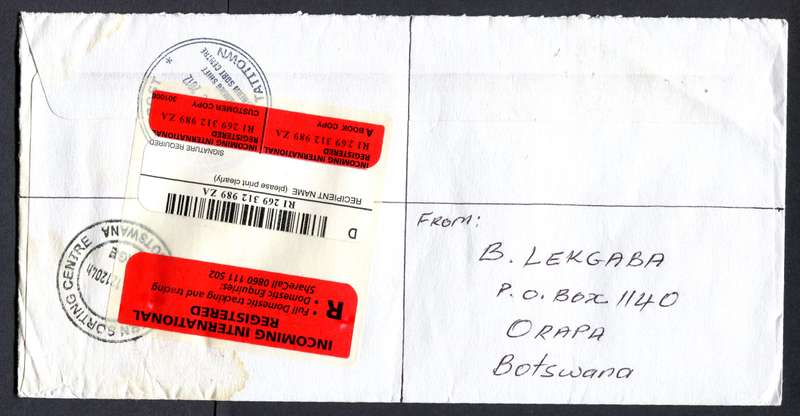 FROM:
B. LEKGABA
P.O. BOX 1140
ORAPA
Botswana
INCOMING INTERNATIONAL
REGISTERED
R
• Full Domestic tracking and tracing
• Domestic Enquiries:
ShareCall 0860 111 502
D
RI 269 312 989 ZA
RECIPIENT NAME (please print clearly)
SIGNATURE REQUIRED
INCOMING INTERNATIONAL
REGISTERED
RI 269 312 989 ZA
A BOOK COPY
INCOMING INTERNATIONAL
REGISTERED
RI 269 312 989 ZA
CUSTOMER COPY
301006
TATITOWN
SORT CENTRE
2012
SORTING CENTRE
BOTSWANA